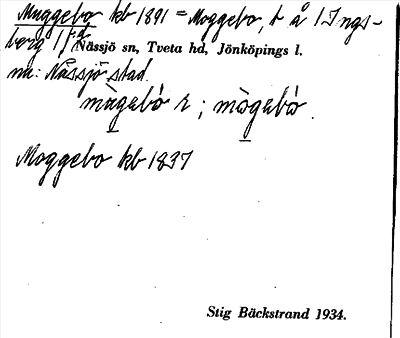 Muggebo kb 1891 = Moggebo, t å 1 Ings-
berg 1/
Nässjö sn, Tveta hd, Jönköpings l.
nu: Nässjö stad.
mùgebò r ; mògebò .
Moggebo kb 1837
Stig Bäckstrand 1934.